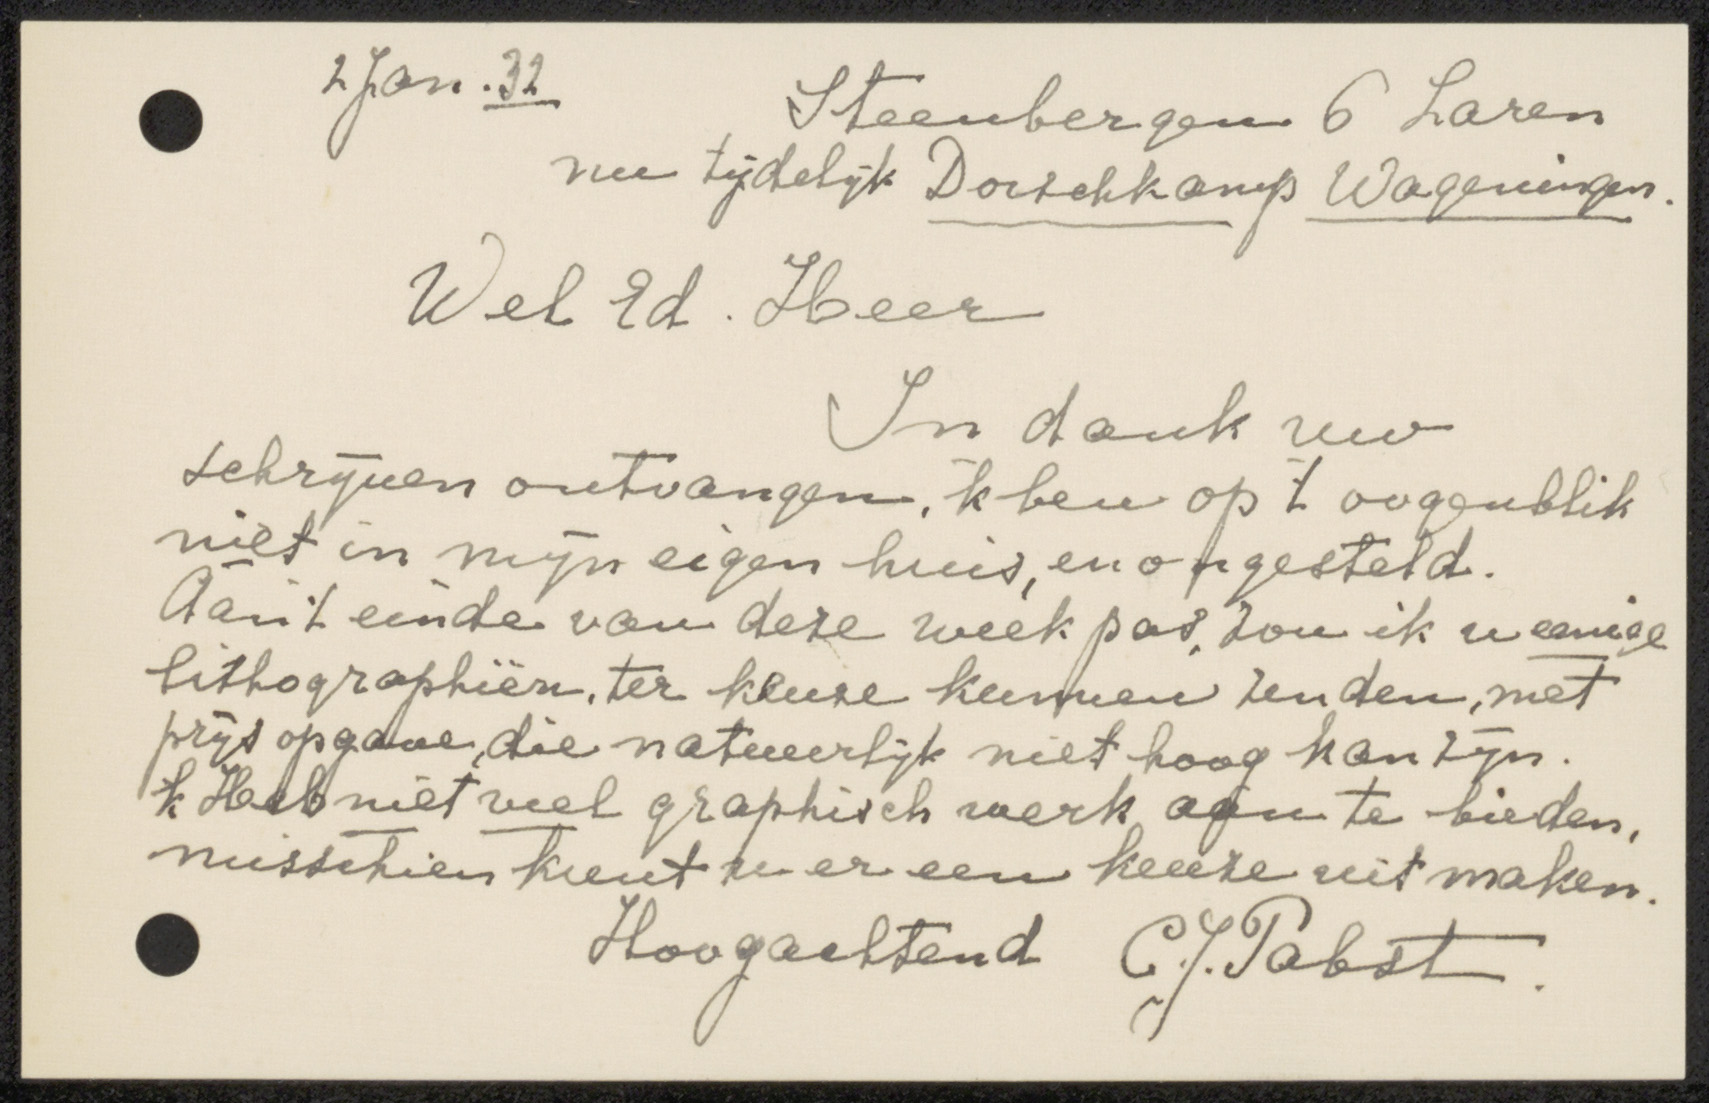 2 Jan. 32
Steenbergen 6 Laren
nu tijdelijk Dorschkamp Wageningen.
Wel Ed. Heer
In dank uw
schrijven ontvangen, 'k ben op 't oogenblik
niet in mijn eigen huis, en ongesteld.
Aan 't einde van deze week pas, zou ik u eenige
lithographiën, ter keuze kunnen zenden, met
prijs opgave, die natuurlijk niet hoog kan zijn.
'k Heb niet veel graphisch werk aan te bieden,
misschien kunt u er een keuze uit maken.
Hoogachtend C.J. Pabst.